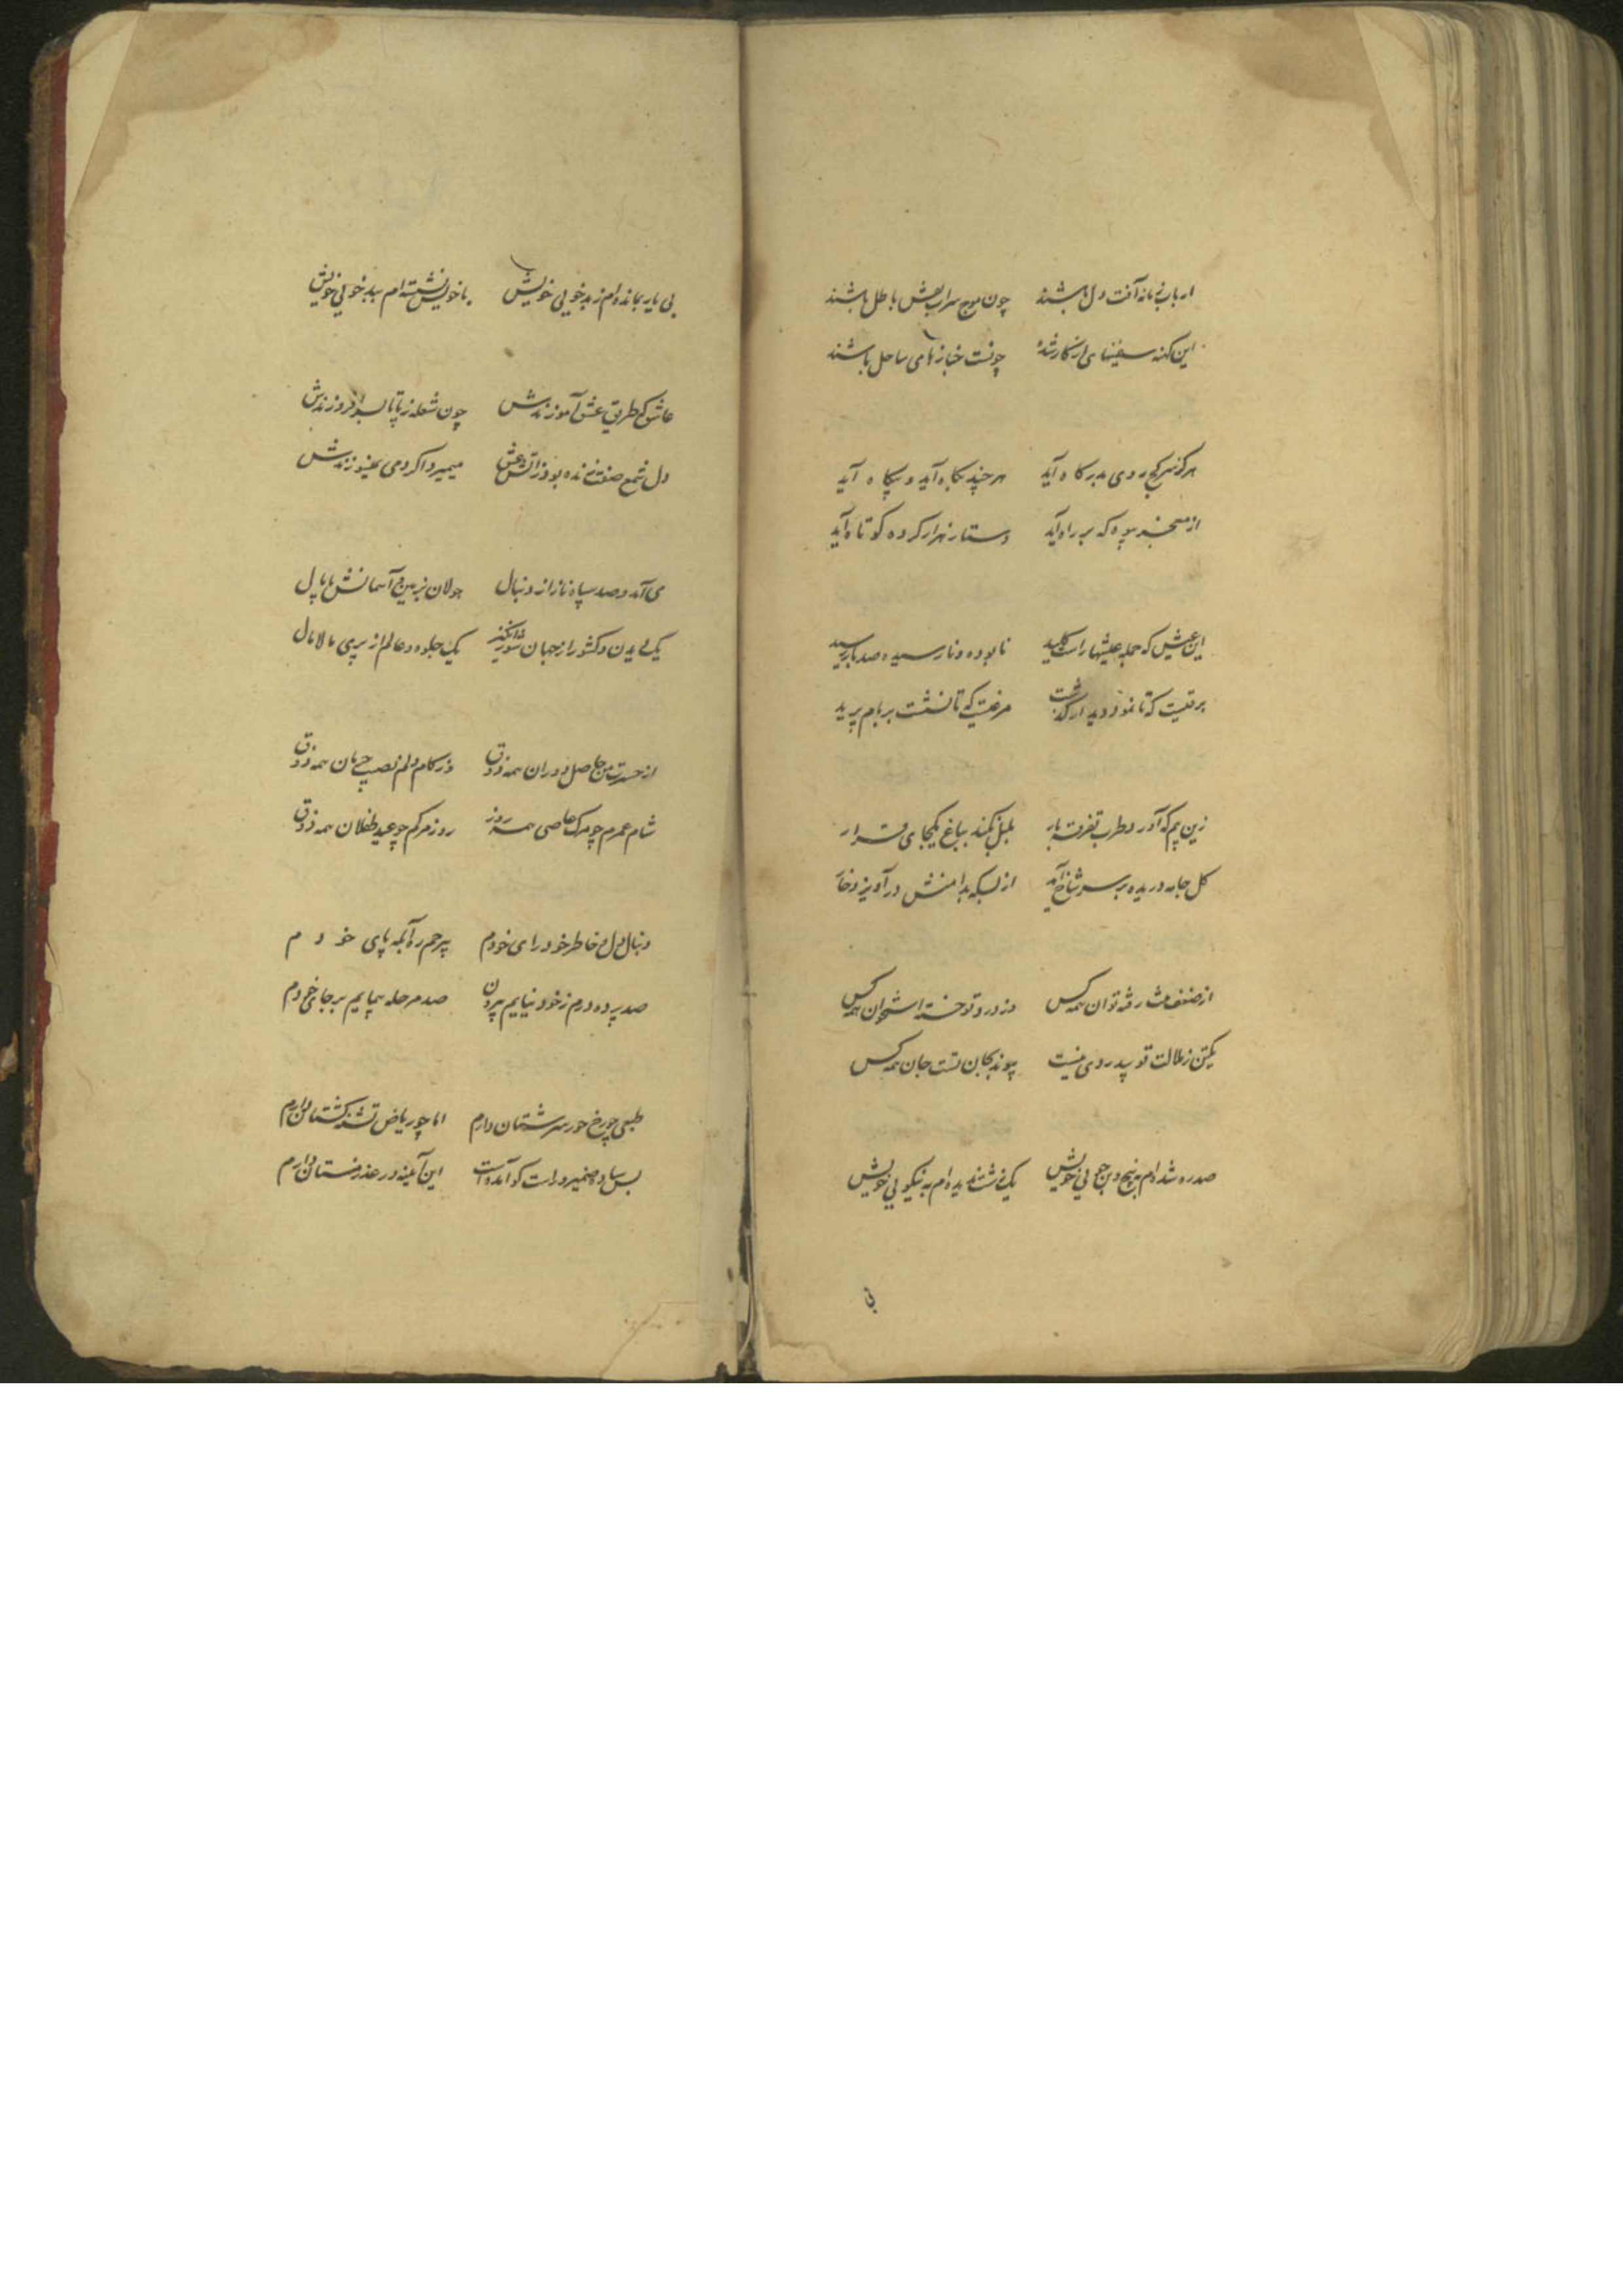 ارباب زمانه آفت دل باشند چون موج سراب نقش باطل باشند
این کهنه سفینهای از کار شده چونست خبازهای ساحل باشند
هرگز سر کج روی بدرگاه آید هر چند بگاه آید و بیگاه آید
از سجه که بر راه آید دستار نهرار کرده کوتاه آید
این عیش که جمله عیشها راست کلید نابوده و نارسیده صد بار رسید
برقیست که تا نمود دیدار گذشت مرغیست که تا نشست بر بام پرید
زین بیم که آرد طرب تفرقه بار بلبل نکند بباغ یکجای قرار
گل جامه دریده بر سر شاخ آمد از بسکه بدامنش درآویزد خار
از ضعف رفته توان همه کس وز درد تو خسته استخوان همه کس
یکتن ز ملالت تو پیدردی نیست پیوند بجان تست جان همه کس
صد ره شده ام برنج دلجویی خویش یک نشنیده ام به نیکویی خویش
بی
بی یار بمانده ام ز بدخویی خویش با خویش نشسته ام ببدخویی خویش
عاشق که طریق عشق آموزندش چون شعله ز پا تا بسر افروزندش
دل شمع صفت زنده بود ز آتش عشق میمیرد اگر دمی نمیسوزندش
می آمد و صد سپاه ناز از دنبال جولان بزمین و آسمانش پامال
یک دیدن و کشور از جهان شورانگیز یک جلوه و عالم از پری مالامال
از حسرت من حاصل دوران همه ذوق وز کام دلم نصیب حرمان همه ذوق
شام عمرم چو مرک عاصی همه روز روز مرکم چو عید طفلان همه ذوق
دنبال دل و خاطر خود رای خودم بیرحم ره آبله پای خودم
صد پرده درم ز خود نیایم بیرون صد مرحله پیمایم بر جای خودم
طبعی چو رخ حور سرشتان دارم اما چو ریاض تشنه کشتان دارم
بس ساده ضمیر و راست کو آمده است این آینه در عذر زشتان دارم